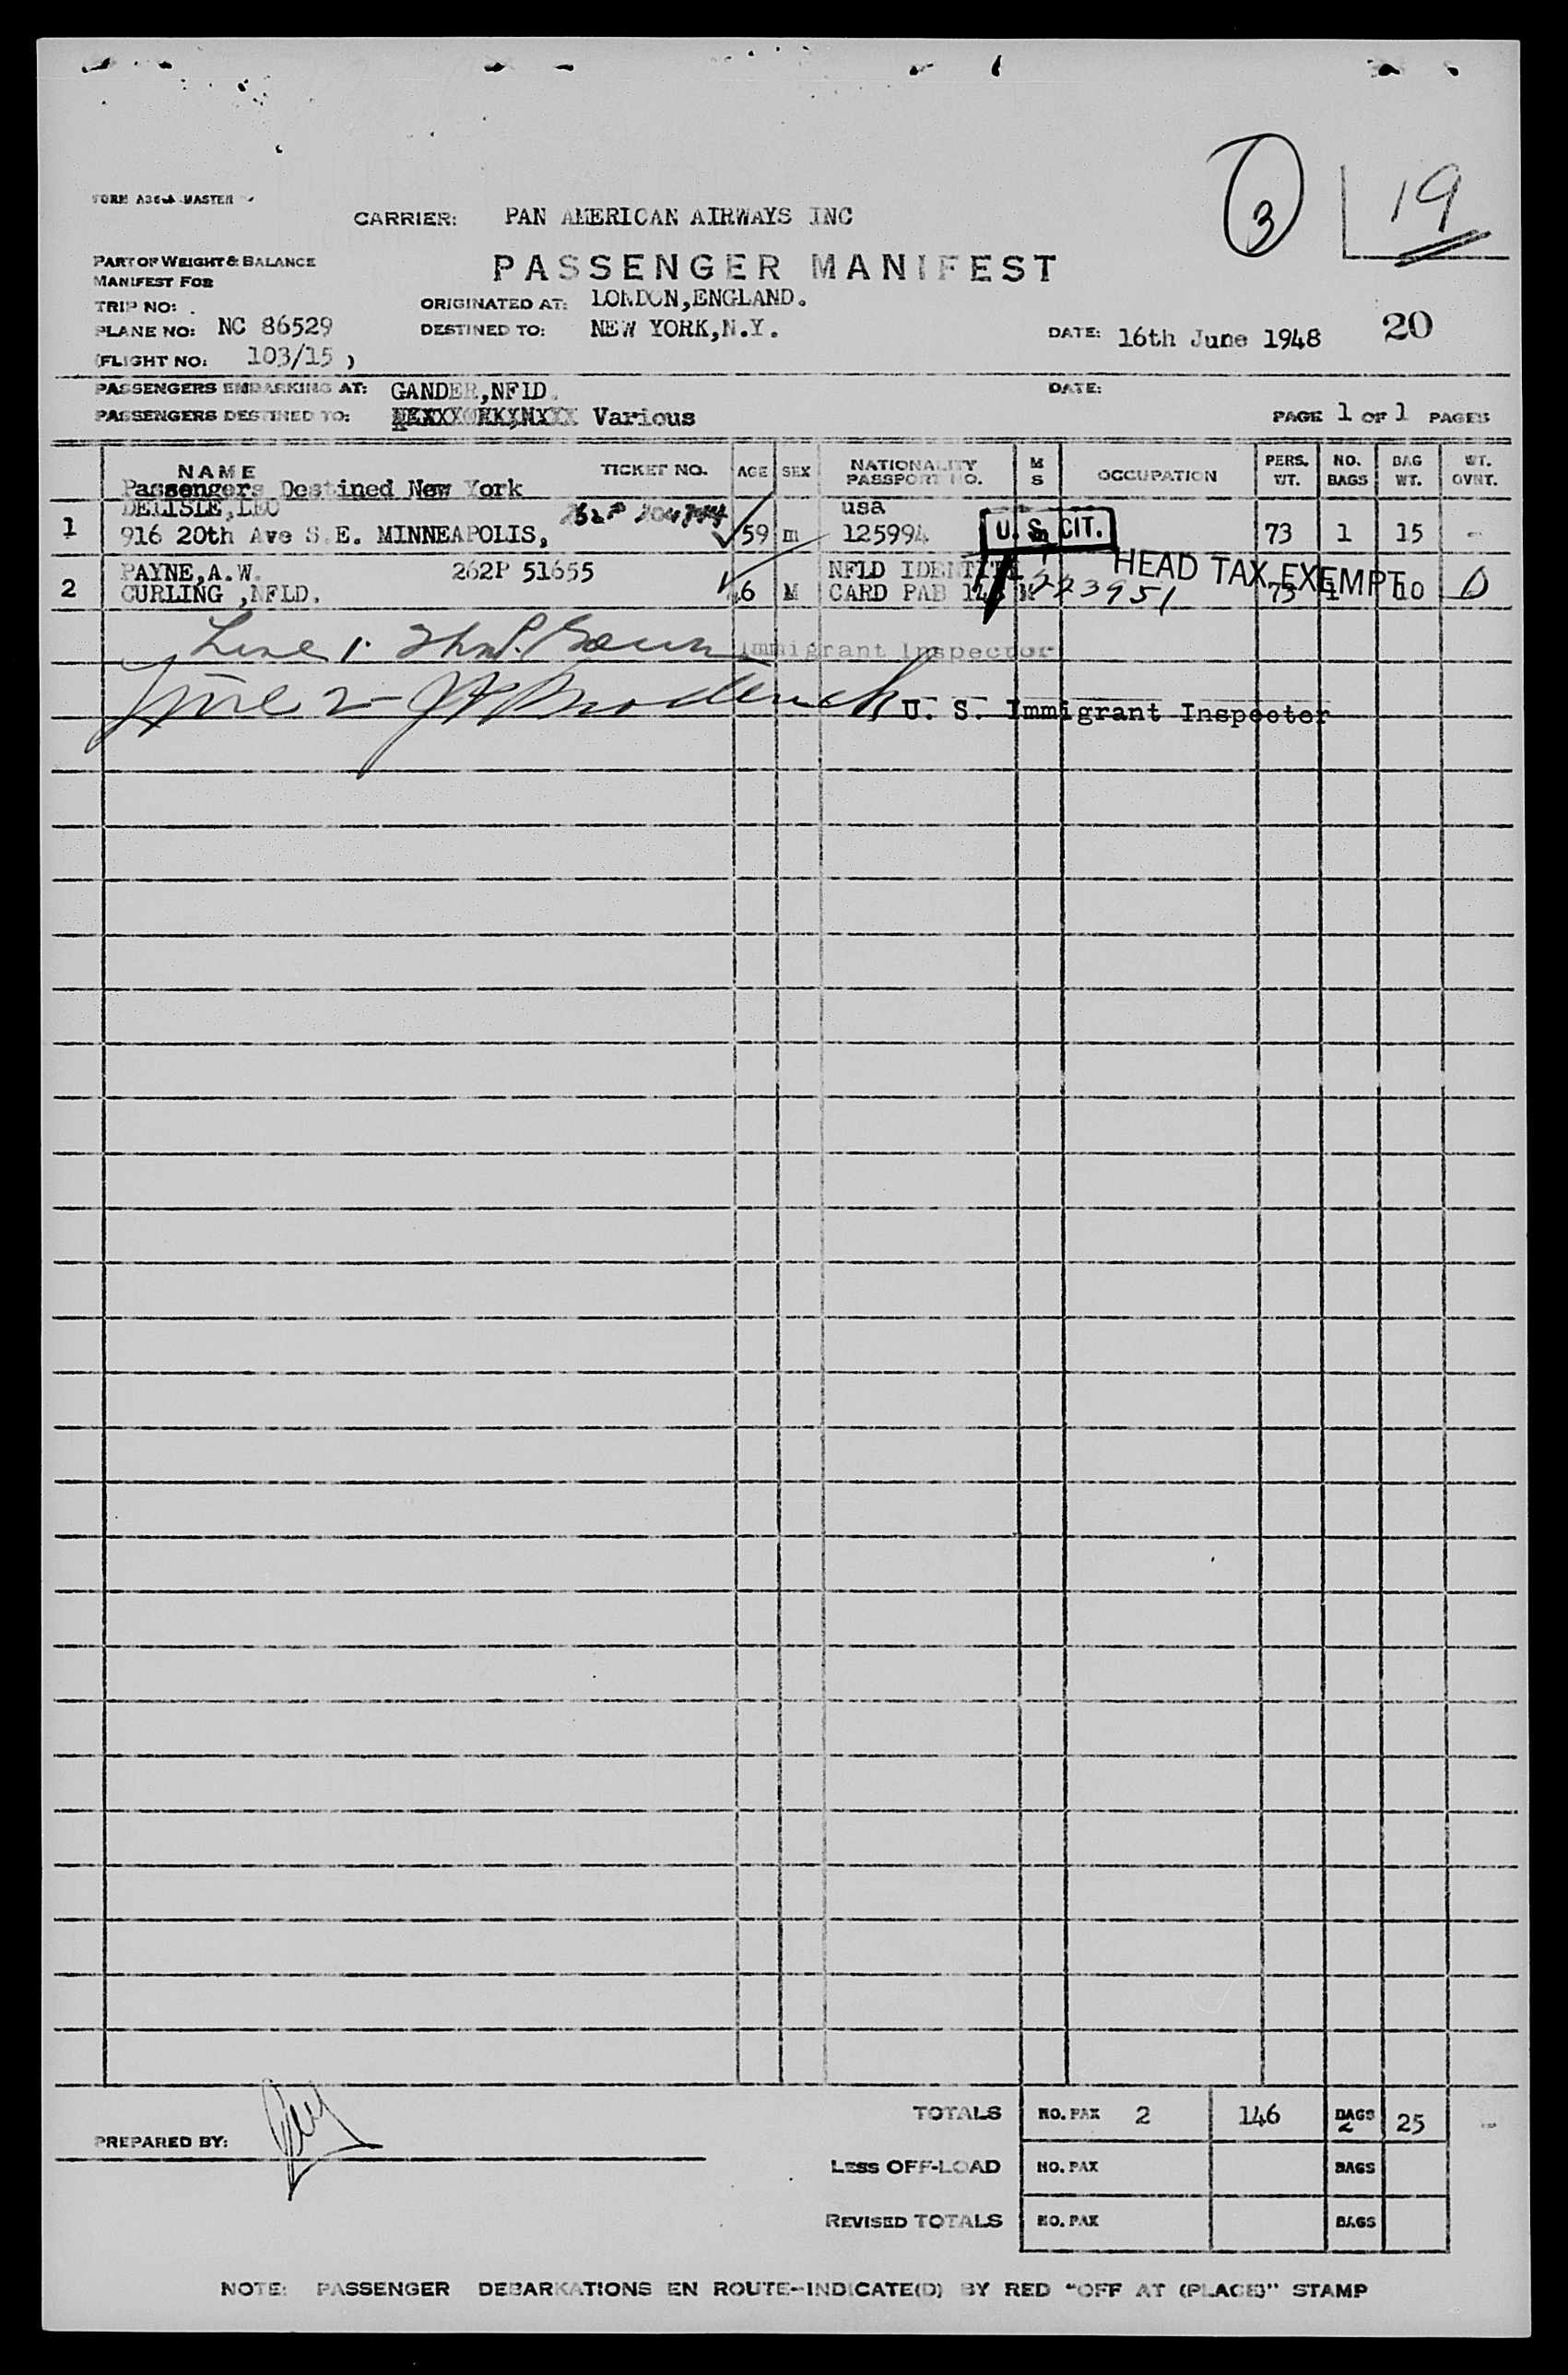 FORM A36-A MASTER
3
19
CARRIER: PAN AMERICAN AIRWAYS INC
PART OF WEIGHT & BALANCE
MANIFEST FOR
PASSENGER MANIFEST
TRIP NO:
ORIGINATED AT: LONDON,ENGLAND.
PLANE NO: NC 86529
DESTINED TO: NEW YORK,N.Y.
DATE: 16th June 1948
20
(FLIGHT NO: 103/15 )
PASSENGERS EMBARKING AT: GANDER,NFLD.
DATE:
PASSENGERS DESTINED TO: Various
PAGE 1 OF 1 PAGES
NAME TICKET NO. AGE SEX NATIONALITY PASSPORT NO. M S OCCUPATION PERS. WT. NO. BAGS BAG WT. WT. OVNT.
Passengers Destined New York
DELISLE,LEO usa
1 916 20th Ave S.E. MINNEAPOLIS, 59 m 125994 U. S. CIT. 73 1 15 -
PAYNE,A.W. 262P 51655 NFLD IDENTITY HEAD TAX EXEMPT
2 CURLING ,NFLD. 46 M CARD PAB 223951 73 1 10 0
Line 1. Immigrant Inspector
Line 2 - U. S. Immigrant Inspector
TOTALS NO. PAX 2 146 BAGS 2 25 -
PREPARED BY:
LESS OFF-LOAD NO. PAX BAGS
REVISED TOTALS NO. PAX BAGS
NOTE: PASSENGER DEBARKATIONS EN ROUTE--INDICATE(D) BY RED "OFF AT (PLACE)" STAMP